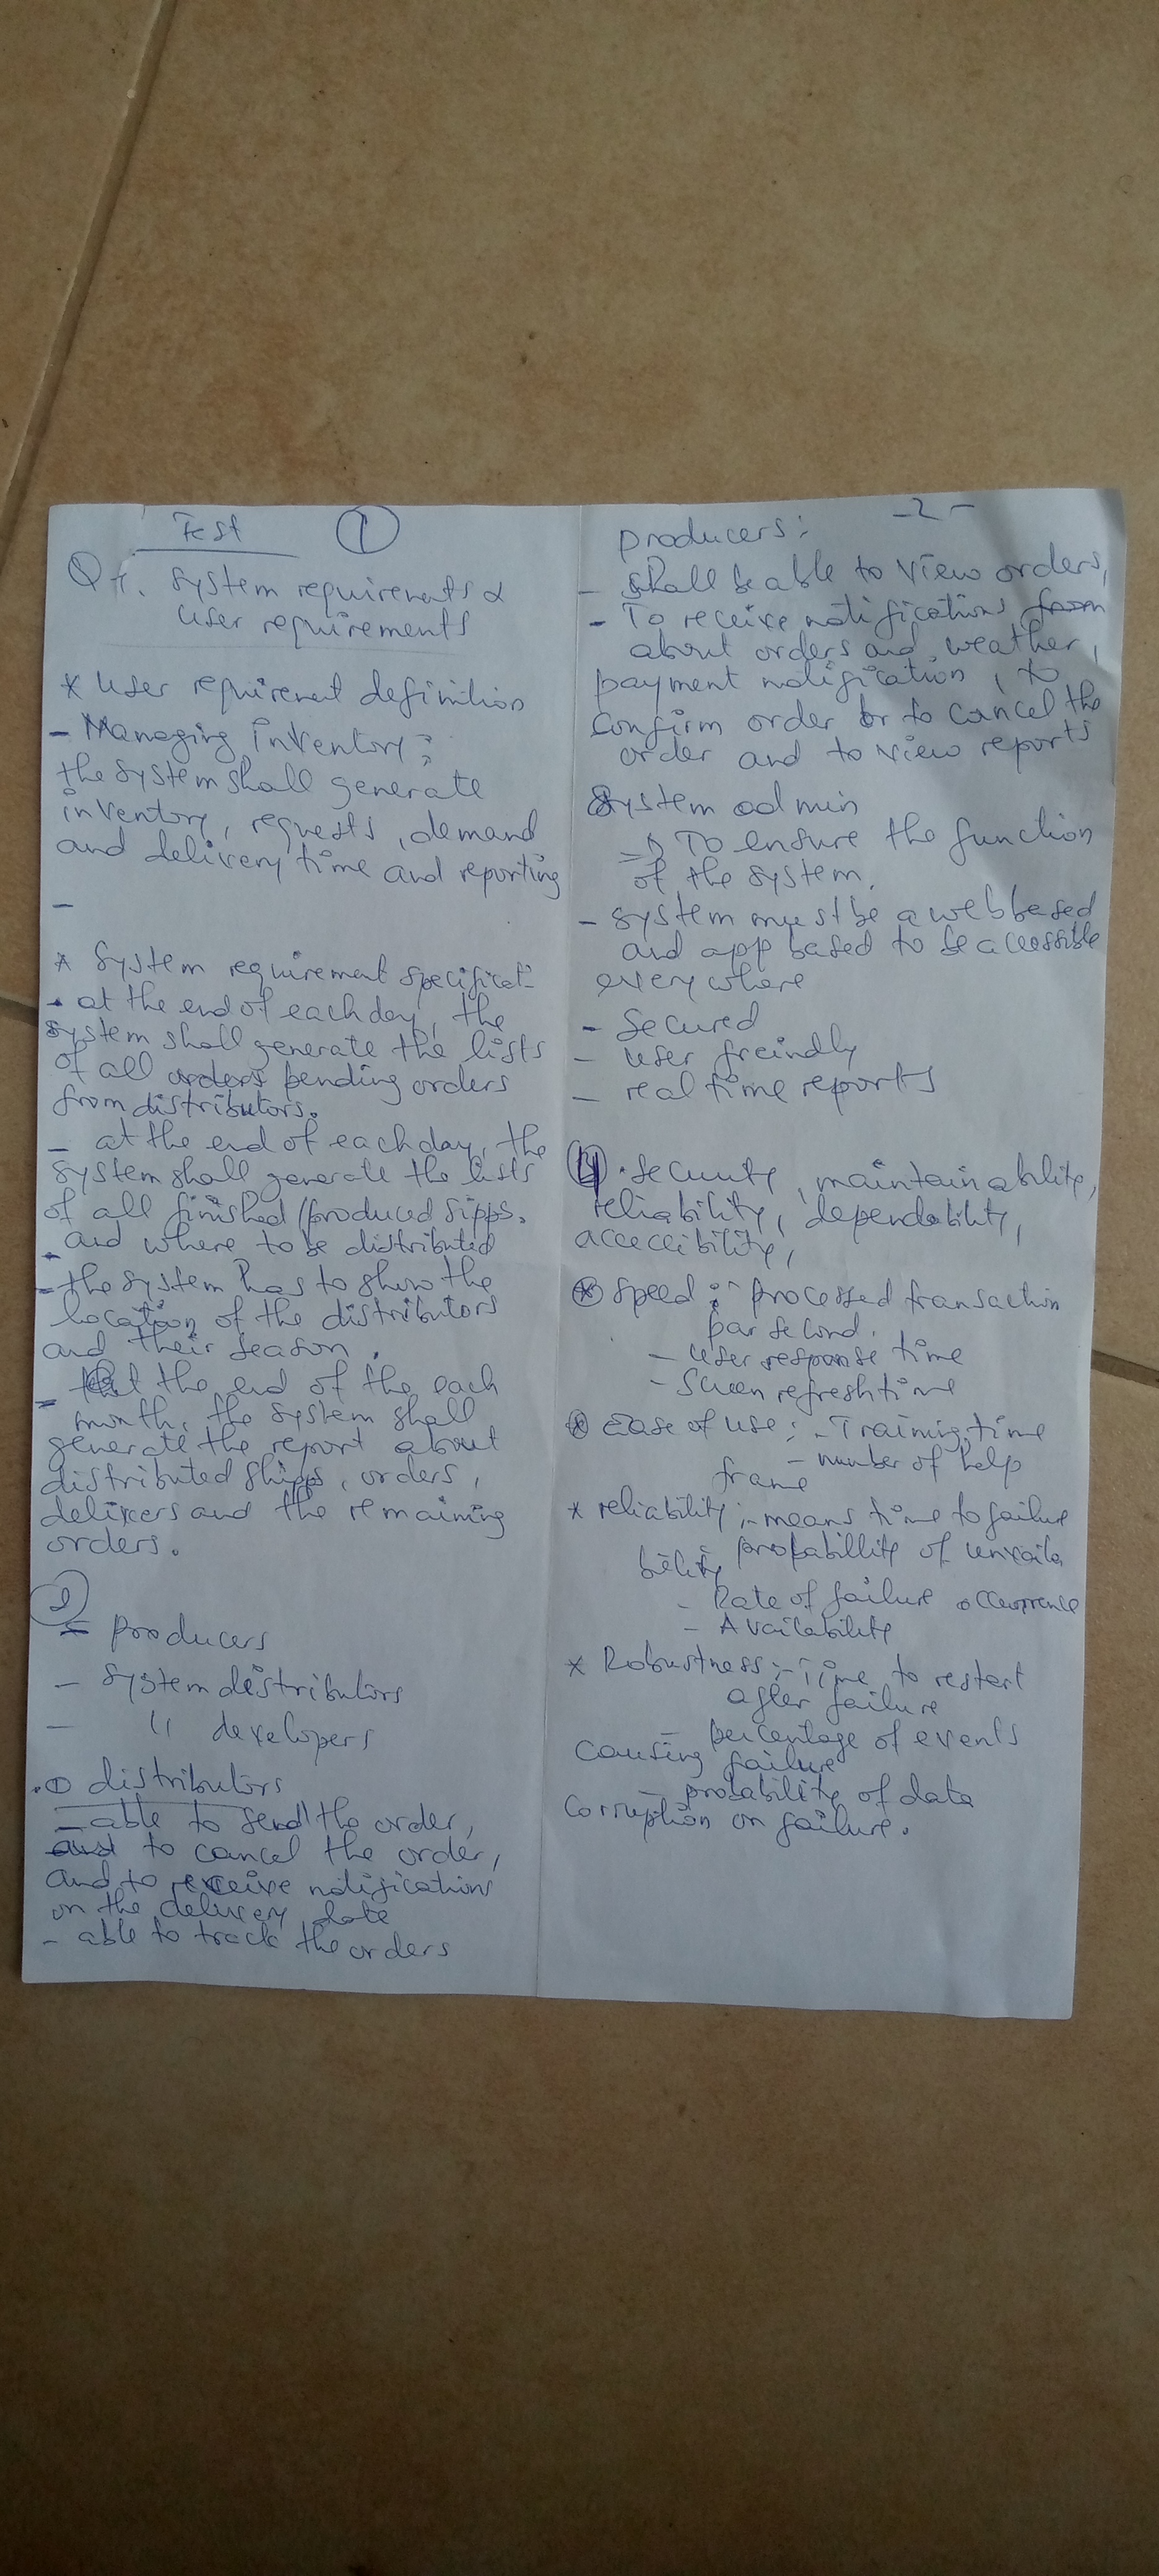 Test ①
Q1. System requirements &
User requirements
* User requirement definition
- Managing inventory:
the system shall generate
inventory, requests, demand
and delivery time and reporting
-
* System requirement specificat:
- at the end of each day, the
system shall generate the lists
of all orders pending orders
from distributors.
- at the end of each day, the
system shall generate the lists
of all finished (produced sipps,
- and where to be distributed
- the system has to show the
location of the distributors
and their season.
- At the end of the each
month, the system shall
generate the report about
distributed shipps, orders,
delivers and the remaining
orders.
2
- producers
- system distributors
- " developers
① distributors
- able to send the order,
and to cancel the order,
and to receive notifications
on the delivery date
- able to track the orders
-2-
producers:
- shall be able to view orders,
- To receive notifications from
about orders and weather,
payment notification, to
confirm order or to cancel the
order and to view reports
System admin
=> To ensure the function
of the system.
- system must be a web based
and app based to be accessible
everywhere
- Secured
- user freindly
- real time reports
4 . Security, maintainability,
reliability, dependability,
acceccibility,
* Speed :- processed transaction
par second.
- User response time
- Screen refresh time
* Ease of use :- Training time
- number of help
frame
* reliability :- means time to failure
probabillity of unvaila
bility
- Rate of failure occurrence
- Availability
* Robustness :- Time to restart
after failure
- percentage of events
causing failure
- probability of data
corruption on failure.